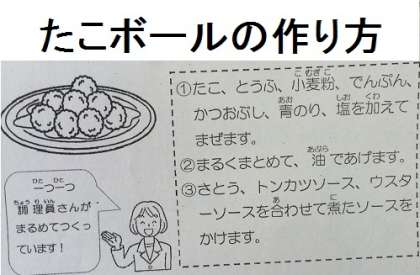 たこボールの作り方
①たこ、とうふ、小麦粉、でんぷん、
かつおぶし、青のり、塩を加えて
まぜます。
②まるくまとめて、油であげます。
③さとう、トンカツソース、ウスタ
ーソースを合わせて煮たソースを
かけます。
一つ一つ
調理員さんが
まるめてつくっ
ています！